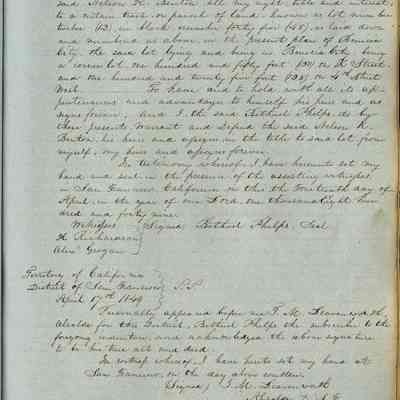 said Nelson K. Benton all my right title and interest
to a certain tract or parcel of land known as lot number
twelve (12) in block number forty five (45) as laid down
and numbered as above on the present plan of Benicia
City the said lot lying and being in Benicia City being
a corner lot one hundred and fifty feet (150) on K Street
and one hundred and twenty five feet (125) on 4th Street
West. To have and to hold with all its ap-
purtenances and advantages to himself his heirs and as
signs forever, And I the said Bethuel Phelps do by
these presents warrant and defend the said Nelson K.
Benton his heirs and assigns in the title to said lot from
myself, my heirs and assigns forever.
In testimony whereof I have hereunto set my
hand and seal in the presence of the assisting witnesses
in San Francisco California on this the Fourteenth day of
April in the year of our Lord one thousand eight hun
dred and forty nine.
Witnesses Signed Bethuel Phelps Seal
H Richardson
Alex Grogan
Territory of California
District of San Francisco S.S.
April 17th 1849
Personally appeared before me T. M. Leavenworth
Alcalde for this District, Bethuel Phelps the subscriber to the
forgoing indenture, and acknowledged the above signature
to be his true act and deed.
In witness whereof I have hereto set my hand at
San Francisco, on the day above written.
Signed, T. M. Leavenworth
Alcalde D. S. F.